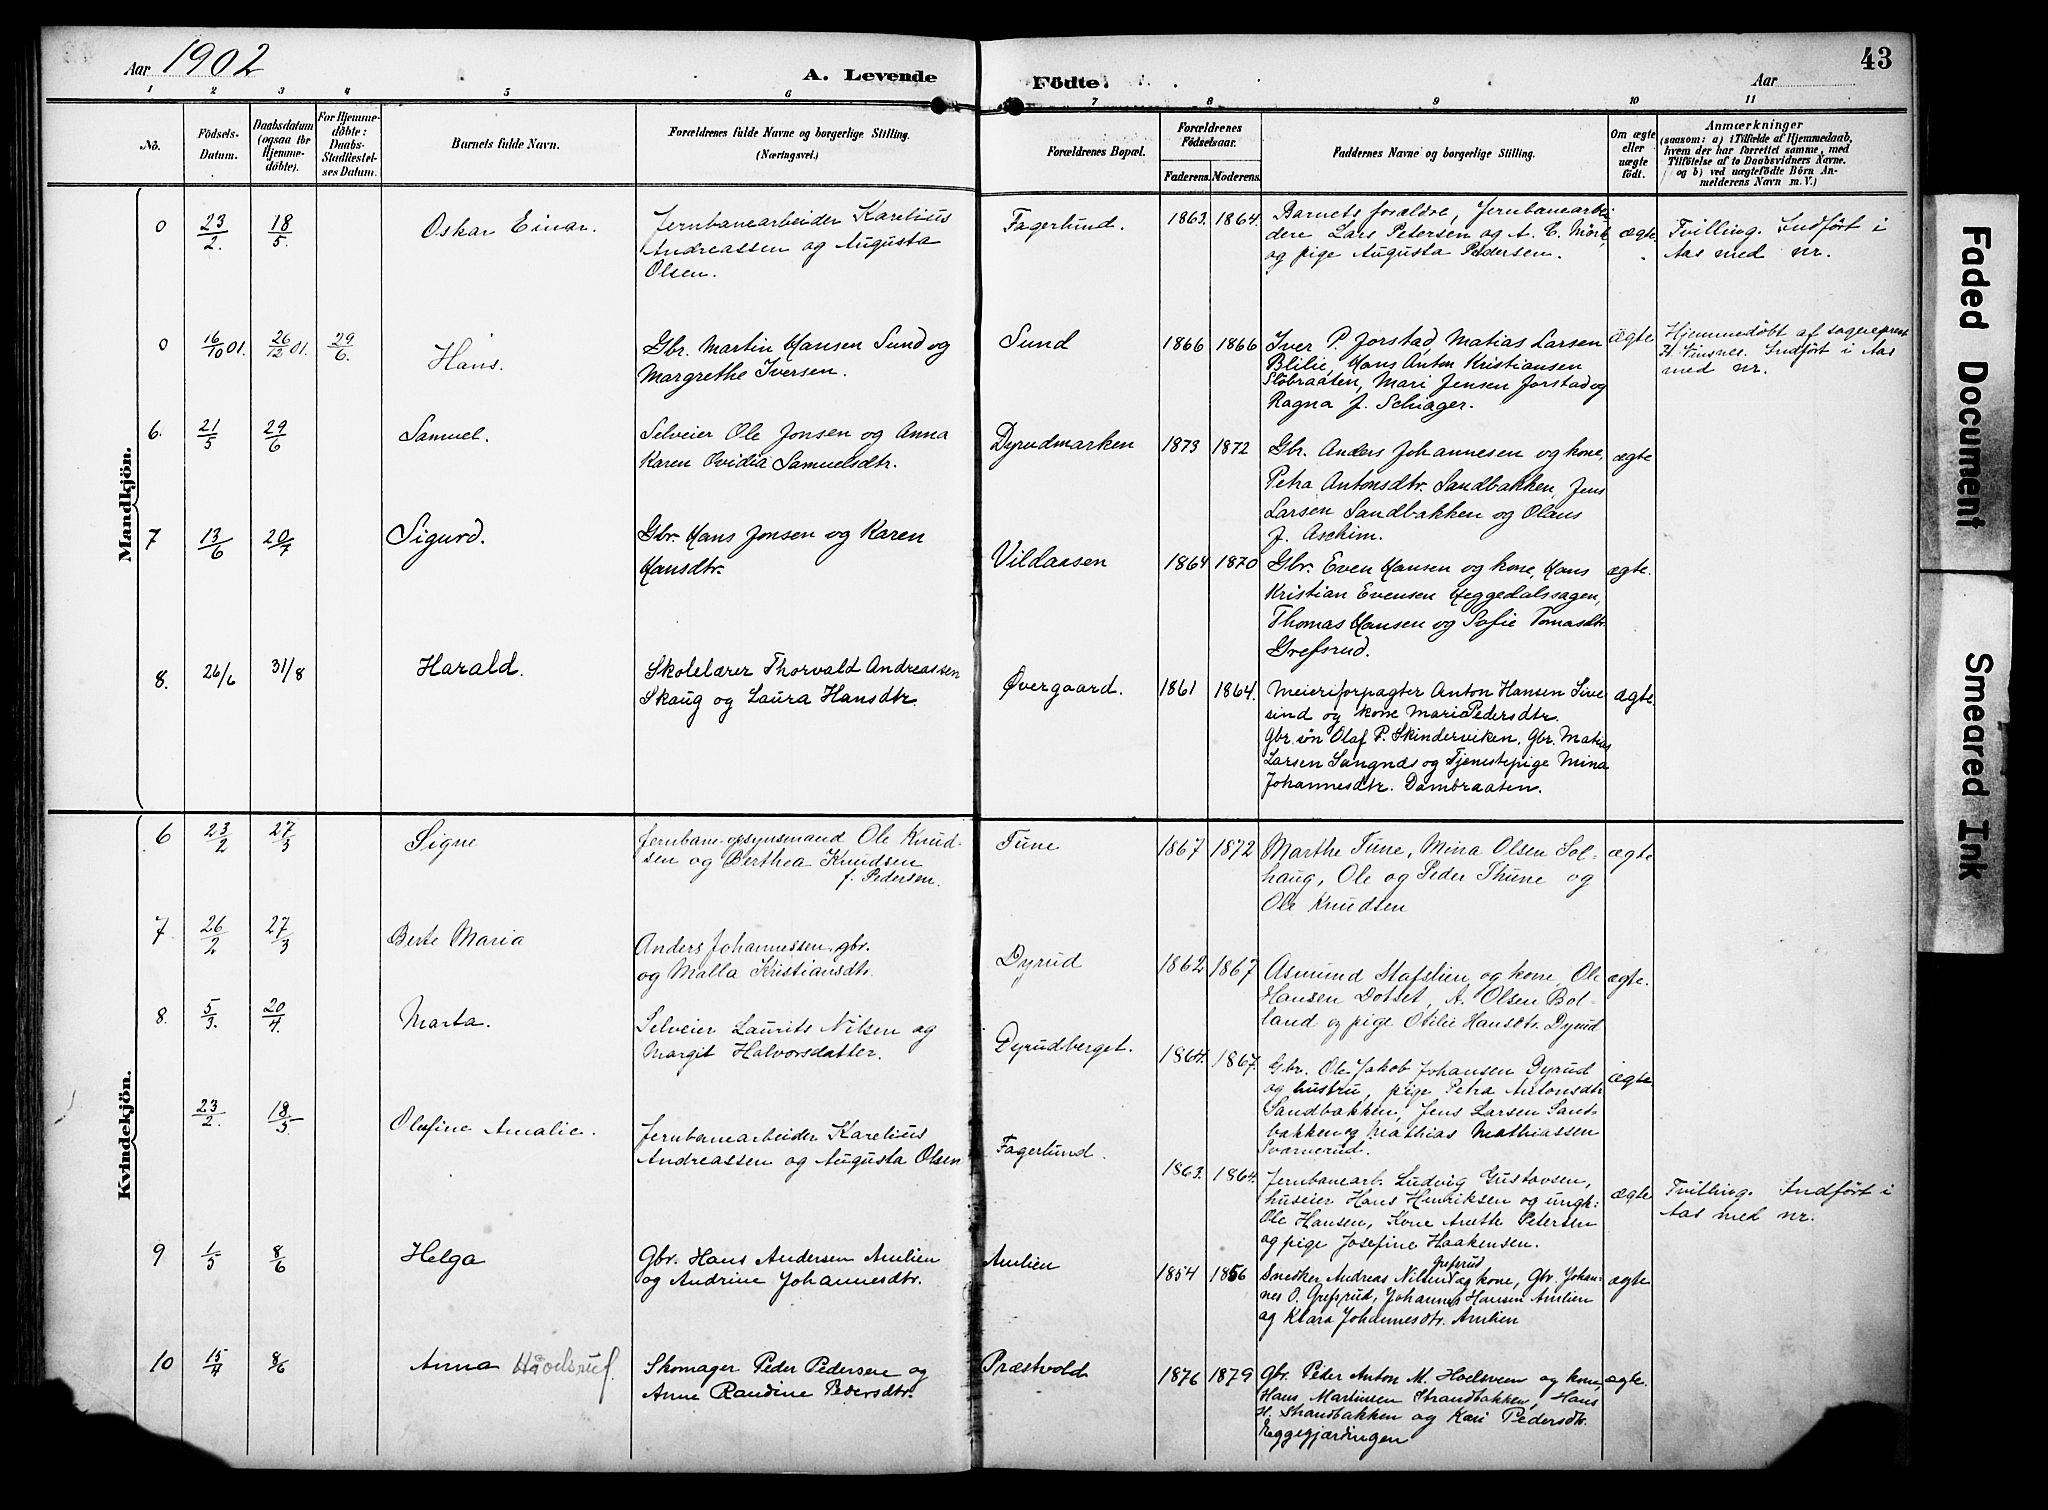 Aar 1902
A. Levende Födte.
Aar
43
1 2 3 4 5 6 7 8 9 10 11
No.
Födsels-
Datum.
Daabsdatum
(ogsaa for
Hjemme-
döbte).
For Hjemme-
döbte:
Daabs-
Stadfæstel-
ses Datum.
Barnets fulde Navn.
Forældrenes fulde Navne og borgerlige Stilling.
(Næringsvei.)
Forældrenes Bopæl.
Forældrenes
Födselsaar.
Faderens. Moderens.
Faddernes Navne og borgerlige Stilling.
Om ægte
eller
uægte
födt.
Anmærkninger
(saasom: a) i Tilfælde af Hjemmedaab,
hvem der har forrettet samme, med
Tilföielse af to Daabsvidners Navne.
og b) ved uægtefödte Börn An-
melderens Navn m. V.)
Mandkjön.
0 23/2 18/5 Oskar Einar.
Jernbanearbeider Karelius
Andreassen og Augusta
Olsen.
Fagerlund. 1863. 1864.
Barnets forældre, Jernbanearbei
dere Lars Petersen og A. C. Mörk,
og pige Augusta Pedersen.
ægte.
Tvilling. Indfört i
Aas med nr.
0 16/10 01. 26/12 01. 29/6. Hans.
Gbr. Martin Hansen Sund og
Margrethe Iversen.
Sund 1866 1866
Iver P. Jorstad Matias Larsen
Blilie, Hans Anton Kristiansen
Stöbraaten, Mari Jensen Jorstad og
Ragna J. Schiager.
ægte
Hjemmedöbt af sogneprest
H. Sinsnes. Indfört i Aas
med nr.
6. 21/5 29/6 Samuel.
Selveier Ole Jonsen og Anna
Karen Ovidia Samuelsdtr.
Dyrudmarken 1873 1872
Gbr. Anders Johannesen og kone,
Petra Antonsdtr. Sandbakken, Jens
Larsen Sandbakken og Olaus
J. Aschim.
ægte
7 13/6 20/7 Sigurd.
Gbr. Hans Jonsen og Karen
Hansdtr.
Vildaasen 1864 1870
Gbr. Even Hansen og kone, Hans
Kristian Evensen Heggedalssagen,
Thomas Hansen og Sofie Tomasdtr.
Grefsrud.
ægte.
8. 26/6 31/8 Harald.
Skolelærer Thorvald Andreassen
Skaug og Laura Hansdtr.
Øvergaard. 1861 1864.
Meieriforpagter Anton Hansen Sive
sind og kone Maria Pedersdtr.
Gbr. søn Olaf P. Skinderviken. Gbr. Matias
Larsen Sangnds og Tjenestepige Mina
Johannesdtr. Dambraaten.
ægte.
Kvindekjön.
6 23/2 27/3 Signe
Jernbane-opsynsmand Ole Knud-
sen og Berthea Knudsen
f. Pedersen.
Tune 1867 1872
Marthe Tune, Mina Olsen Sol-
haug, Ole og Peder Thune og
Ole Knudsen
ægte
7 26/2 27/3 Berte Maria
Anders Johannessen, gbr.
og Malla Kristiansdtr.
Dyrud 1862 1867
Asmund Stafslien og kone, Ole
Hansen Dotset, A. Olsen Bol-
land og pige Otilie Hansdtr. Dyrud
ægte.
8. 5/3. 20/4 Marta.
Selveier Laurits Nilsen og
Margit Halvorsdatter.
Dyrudberget. 1864. 1867.
Gbr. Ole Jakob Johansen Dyrud
og hustru, pige Petra Antonsdtr
Sandbakken, Jens Larsen Sand-
bakken og Mathias Mathiassen
Svarverud.
ægte
23/2. 18/5. Olefine Amalie.
Jernbanearbeider Karelius
Andreassen og Augusta Olsen
Fagerlund. 1863. 1864.
Jernbanearb. Ludvig Gustavsen,
huseier Hans Henriksen og ungk:
Ole Hansen, Kone Anette Petersen
og pige Josefine Haakensen.
ægte
Tvilling. Indfört i
Aas med nr.
9 1/5 8/6 Helga
Gbr. Hans Andersen Amlien
og Andrine Johannesdtr.
Amlien 1854 1856
Grefsrud
Snedker Andreas Nilsen og kone, Gbr. Johan-
nes O. Grefsrud, Johannes Hansen Amlien
og Klara Johannesdtr. Amlien
ægte
10 15/4 8/6 Anna
Skomager Peder Pedersen og
Anne Randine Pedersdtr.
Præstvold 1876 1879
Gbr. Peder Anton M. Hoelsveen og kone,
Hans Martinsen Strandbakken, Hans
H. Strandbakken og Kari Pedersdtr.
Eggegjærdingen
ægte.
Faded Document
Smeared Ink